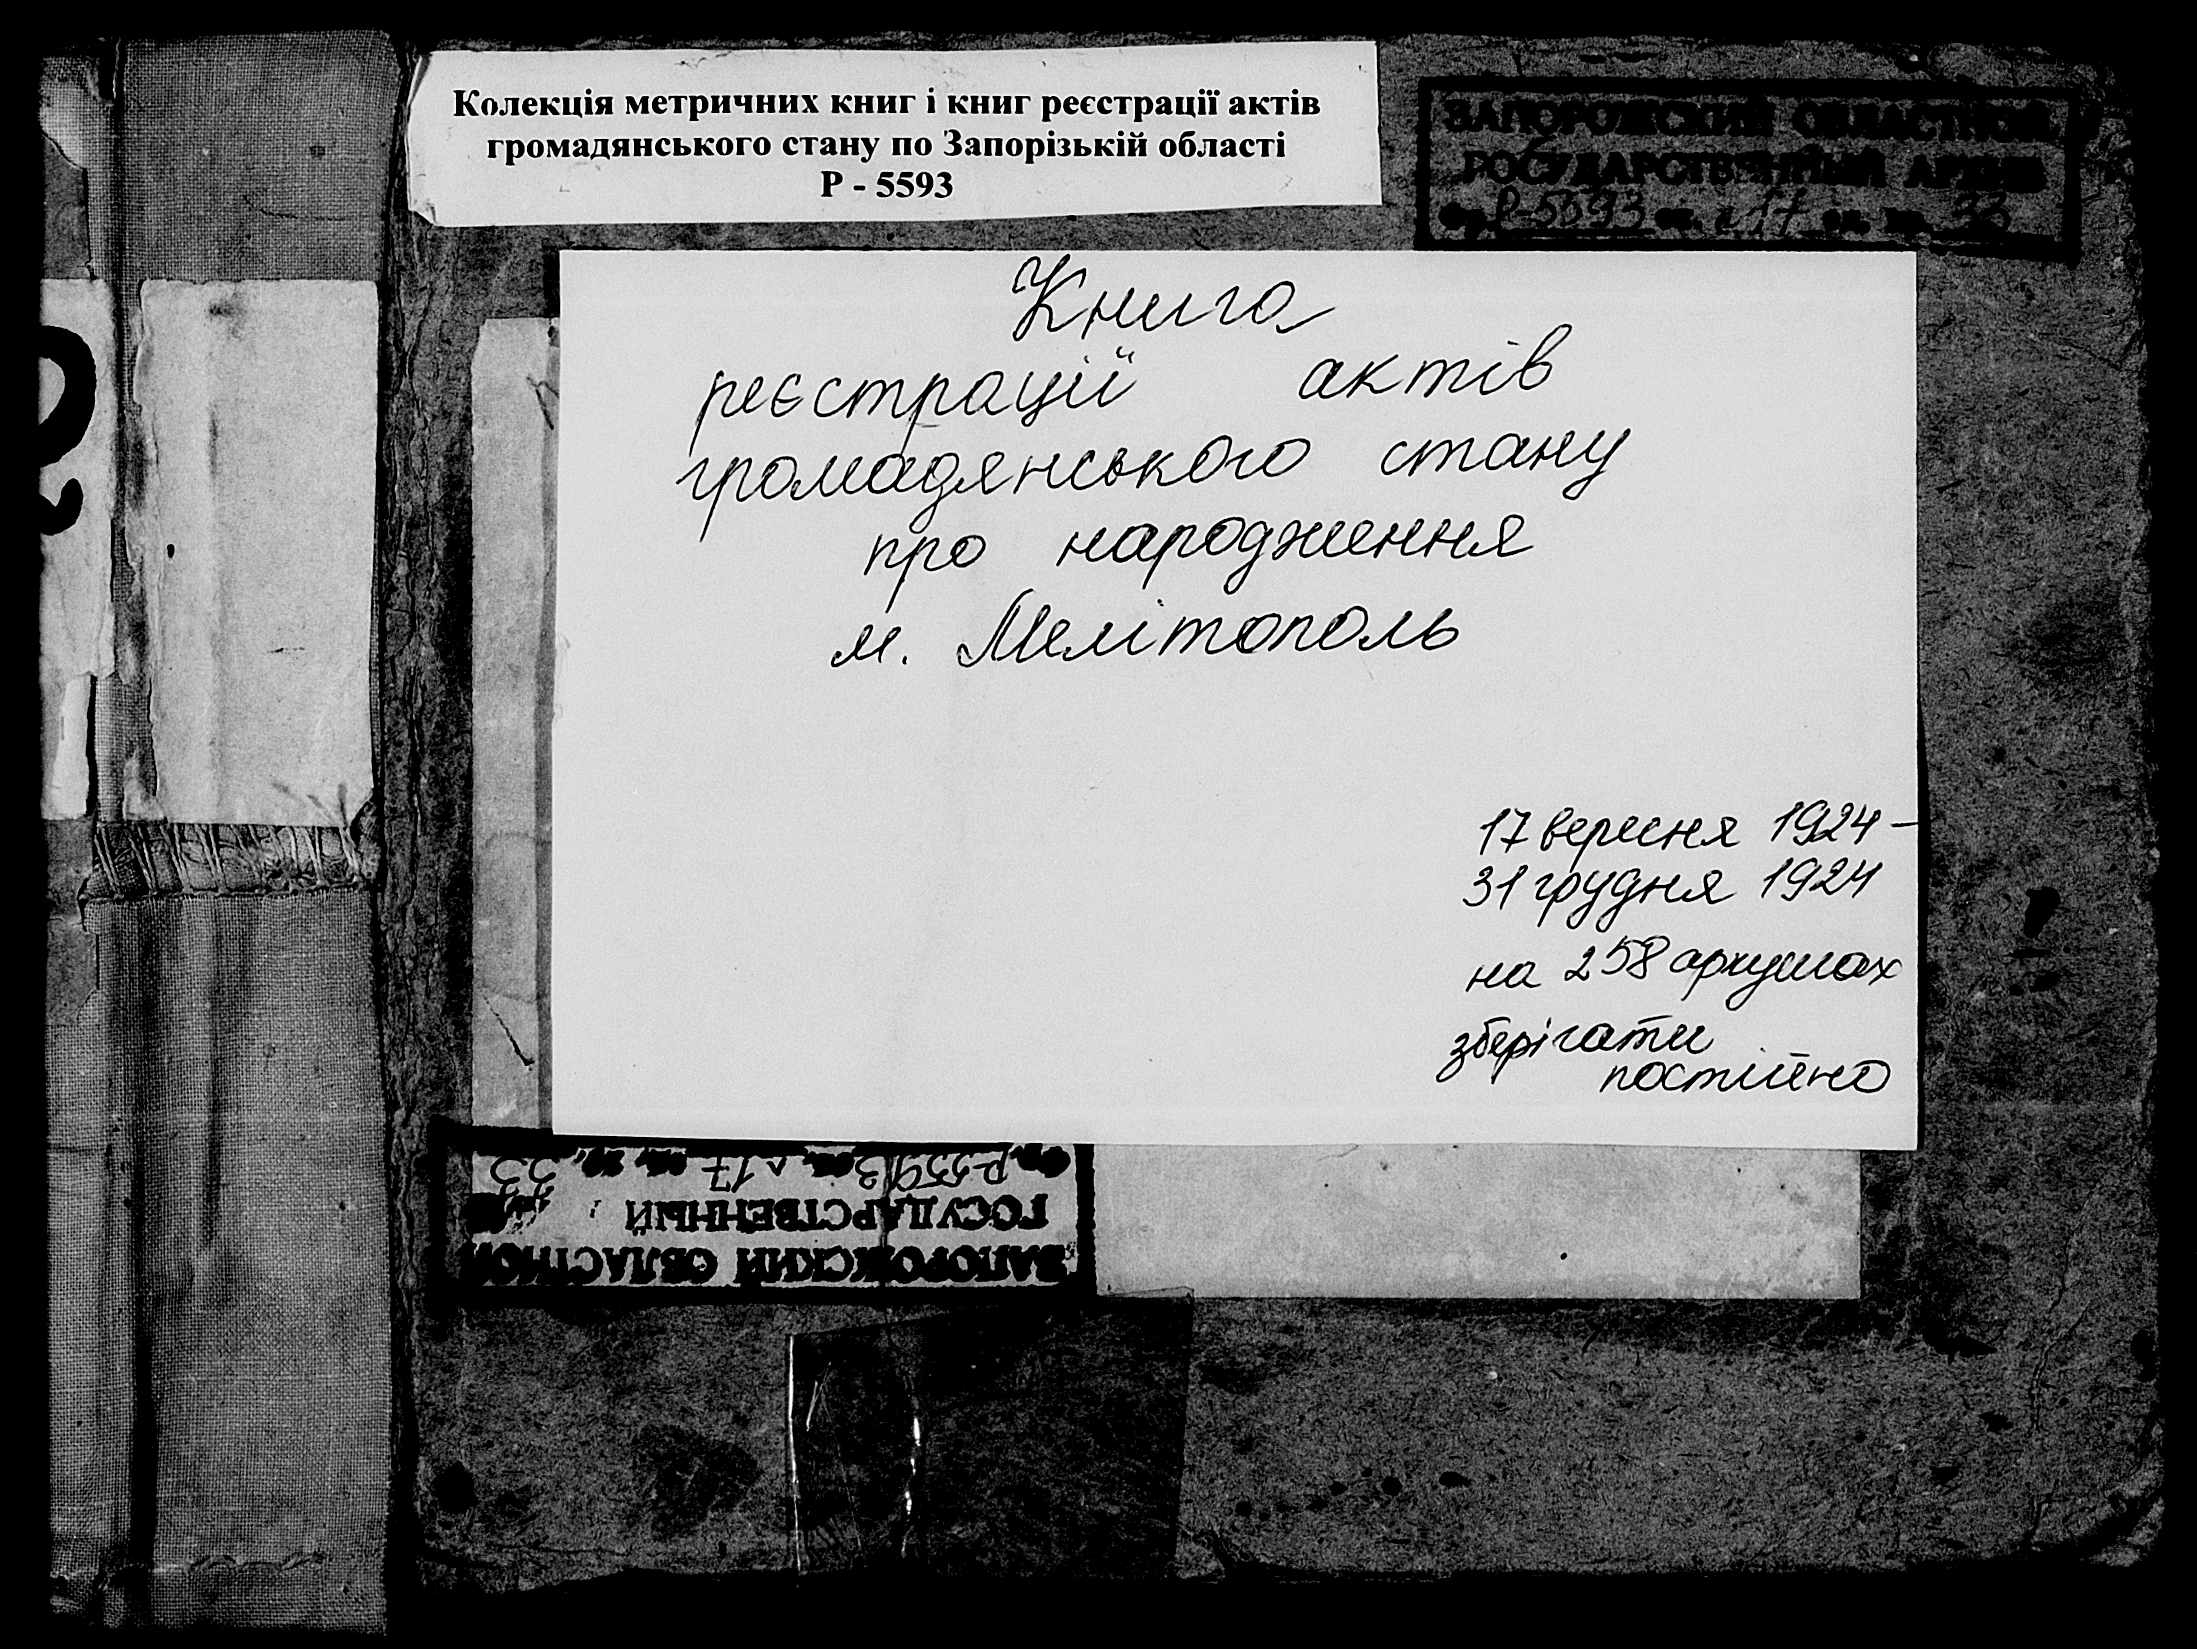 Колекція метричних книг і книг реєстрації актів
громадянського стану по Запорізькій області
Р - 5593
ЗАПОРОЖСКИЙ ОБЛАСТНОЙ
ГОСУДАРСТВЕННЫЙ АРХИВ
Фр. Р-5593 оп. л17 ед. хр. 33
Книга
реєстрації актів
громадянського стану
про народження
м. Мелітополь
17 вересня 1924 –
31 грудня 1924
на 258 аркушах
зберігати
постійно
ЗАПОРОЖСКИЙ ОБЛАСТНОЙ
ГОСУДАРСТВЕННЫЙ
Р-5593 оп. л17 ед. хр. 33